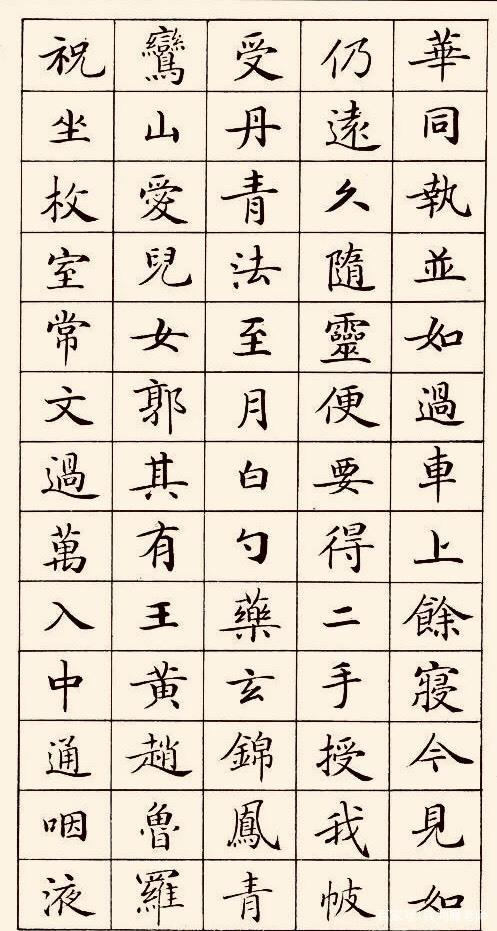 華同執並如過車上餘寢今見如
仍遠久隨靈便要得二手授我帔
受丹青法至月白勺藥玄錦鳳青
鸞山愛兒女郭其有王黃趙魯羅
祝坐枚室常文過萬入中通咽液